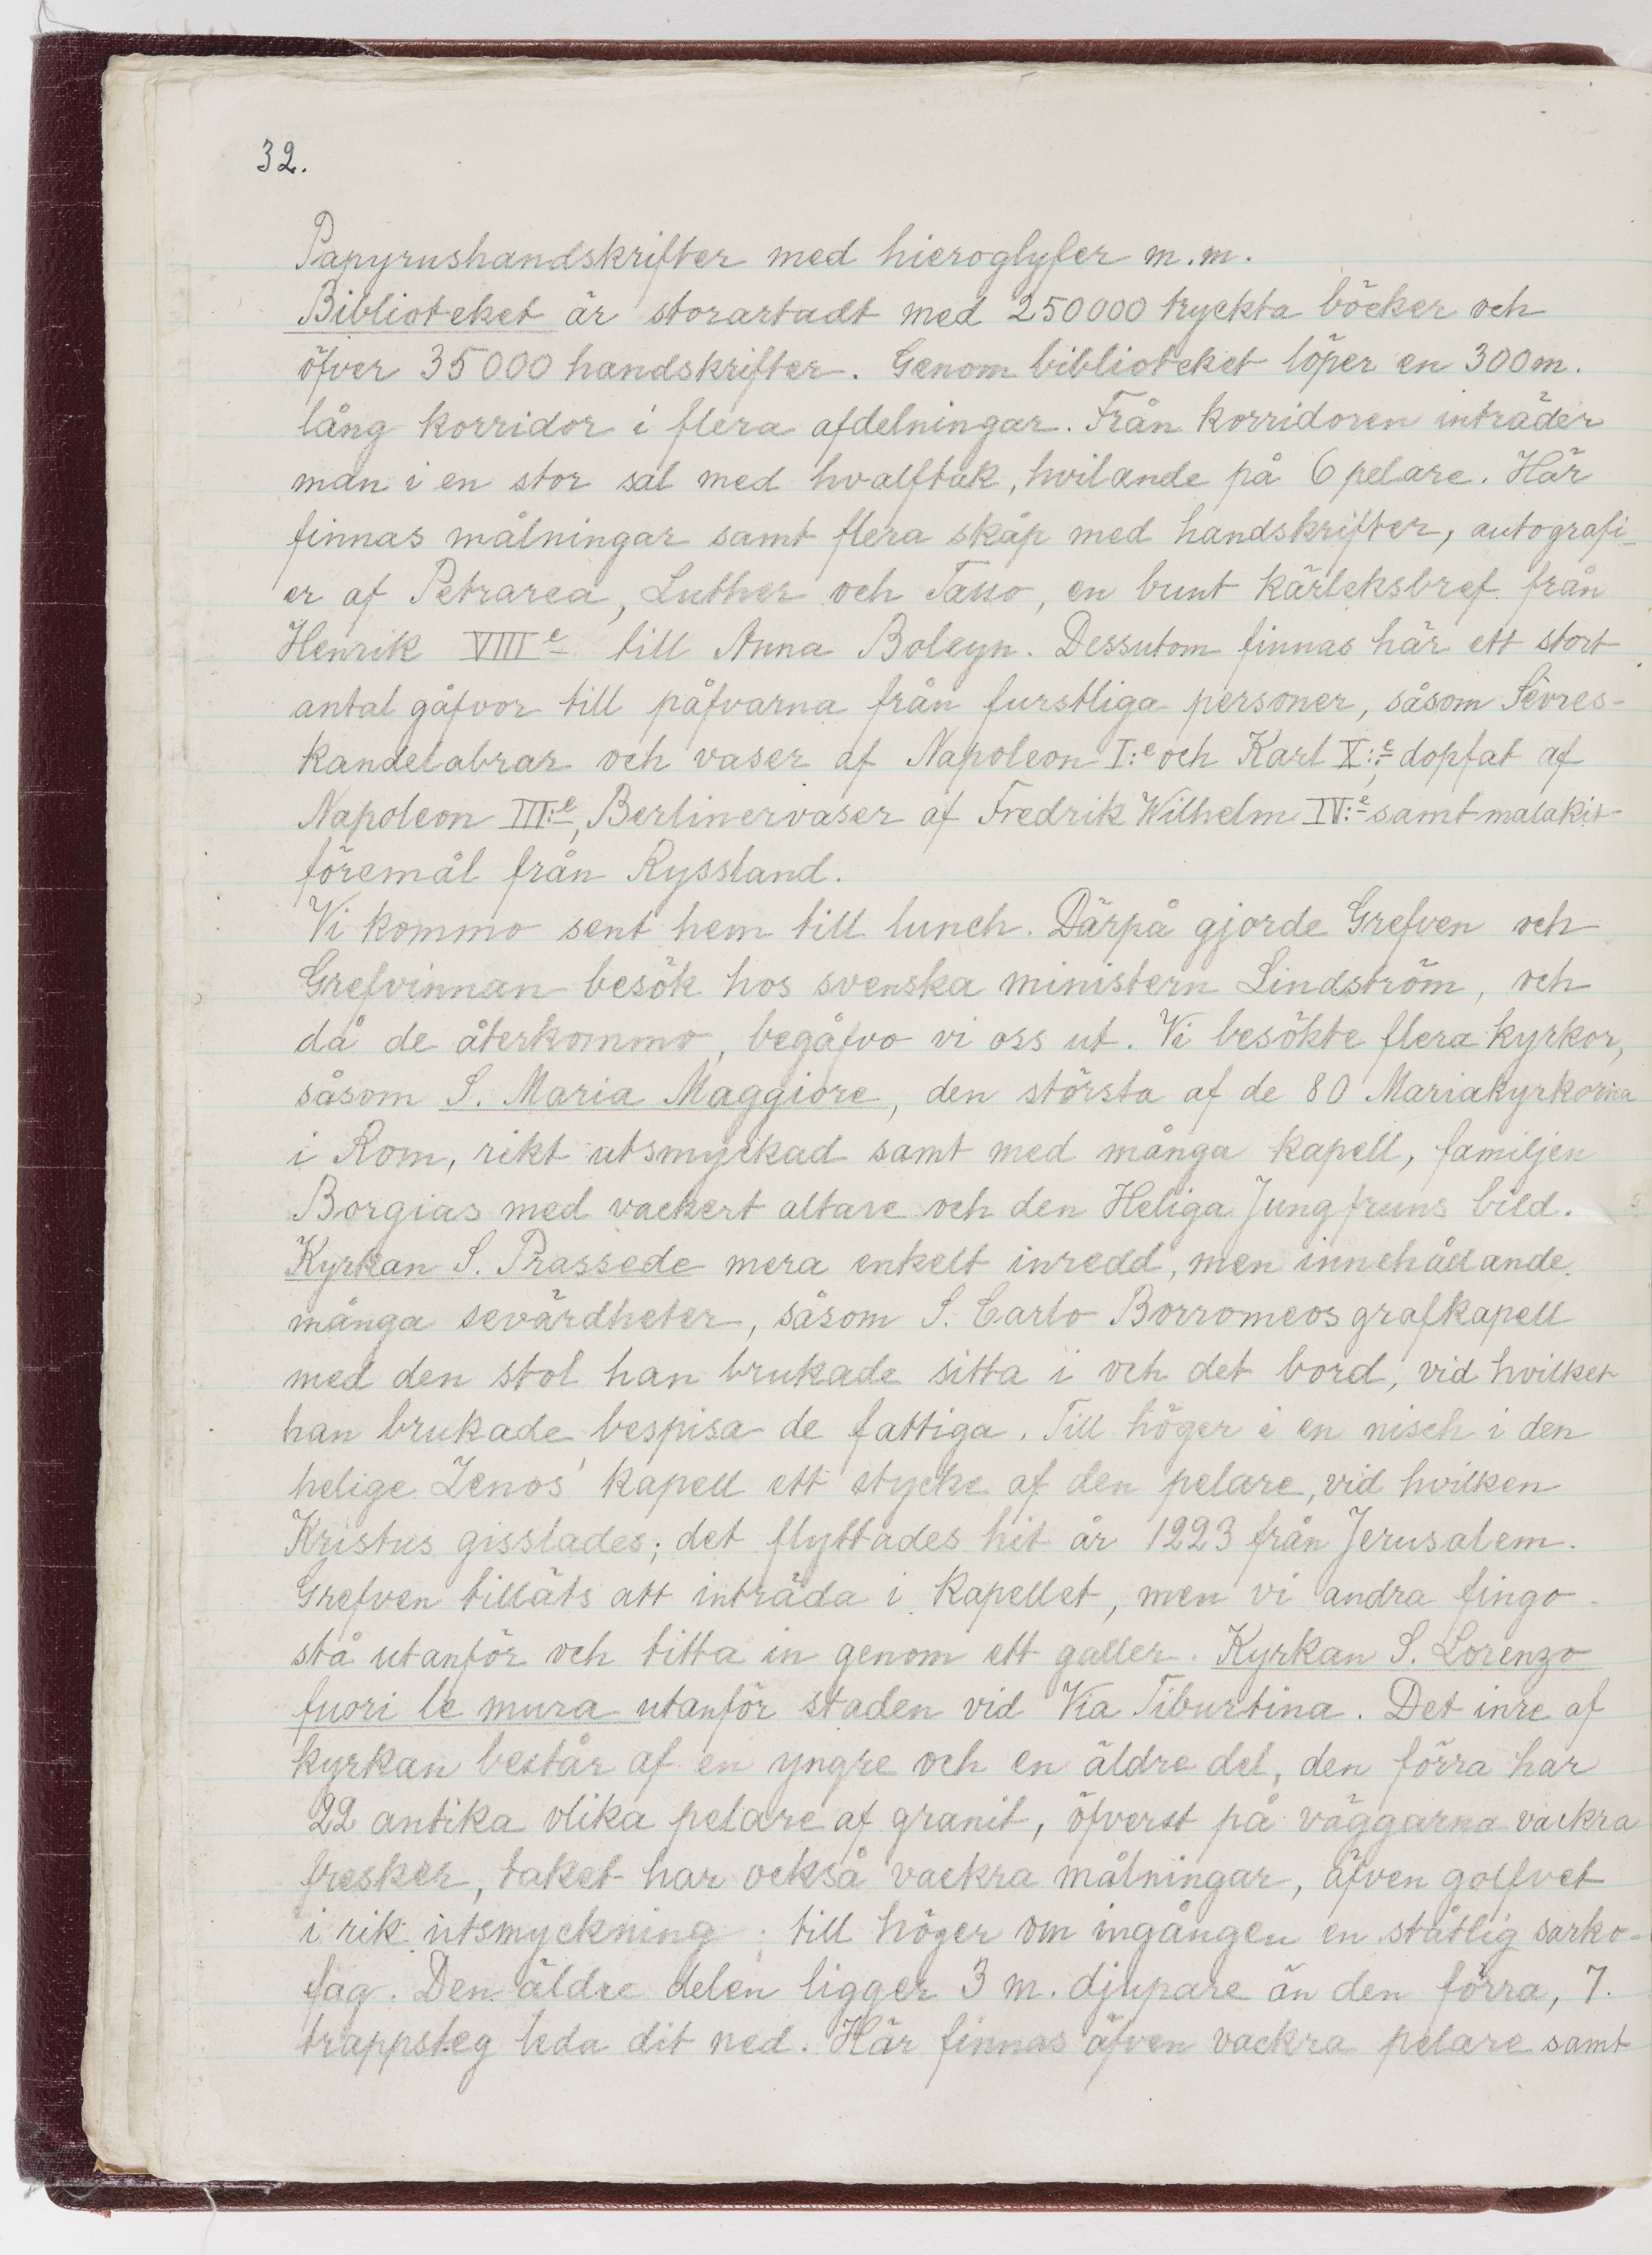 32.
Papyrushandskrifter med hieroglyfer m.m.
Biblioteket är storartadt med 250000 tryckta böcker och
öfver 35000 handskrifter. Genom biblioteket löper en 300m.
lång korridor i flera afdelningar. Från korridoren inträder
man i en stor sal med hvalftak, hvilande på 6 pelare. Här
finnas målningar samt flera skåp med handskrifter, autografi-
er af Petrarca, Luther och Tasso, en bunt kärleksbref från
Henrik VIIIe till Anna Boleyn. Dessutom finnas här ett stort
antal gåfvor till påfvarna från furstliga personer, såsom Sèvres-
kandelabrar och vaser af Napoleon I:e och Karl X:e, dopfat af
Napoleon III:e, Berlinervaser af Fredrik Wilhelm IV:e samt malakit-
föremål från Ryssland.
Vi kommo sent hem till lunch. Därpå gjorde Grefven och
Grefvinnan besök hos svenska ministern Lindström, och
då de återkommo, begåfvo vi oss ut. Vi besökte flera kyrkor,
såsom S. Maria Maggiore, den största af de 80 Mariakyrkorna
i Rom, rikt utsmyckad samt med många kapell, familjen
Borgias med vackert altare och den Heliga Jungfruns bild.
Kyrkan S. Prassede mera enkelt inredd, men innehållande
många sevärdheter, såsom S. Carlo Borromeos grafkapell
med den stol han brukade sitta i och det bord, vid hvilket
han brukade bespisa de fattiga. Till höger i en nisch i den
helige Zenos' kapell ett stycke af den pelare, vid hvilken
Kristus gisslades; det flyttades hit år 1223 från Jerusalem.
Grefven tilläts att inträda i kapellet, men vi andra fingo
stå utanför och titta in genom ett galler. Kyrkan S. Lorenzo
fuori le mura utanför staden vid Via Tiburtina. Det inre af
kyrkan består af en yngre och en äldre del, den förra har
22 antika olika pelare af granit, öfverst på väggarna vackra
fresker, taket har också vackra målningar, äfven golfvet
i rik utsmyckning; till höger om ingången en ståtlig sarko-
fag. Den äldre delen ligger 3 m. djupare än den förra, 7.
trappsteg leda dit ned. Här finnas äfven vackra pelare samt